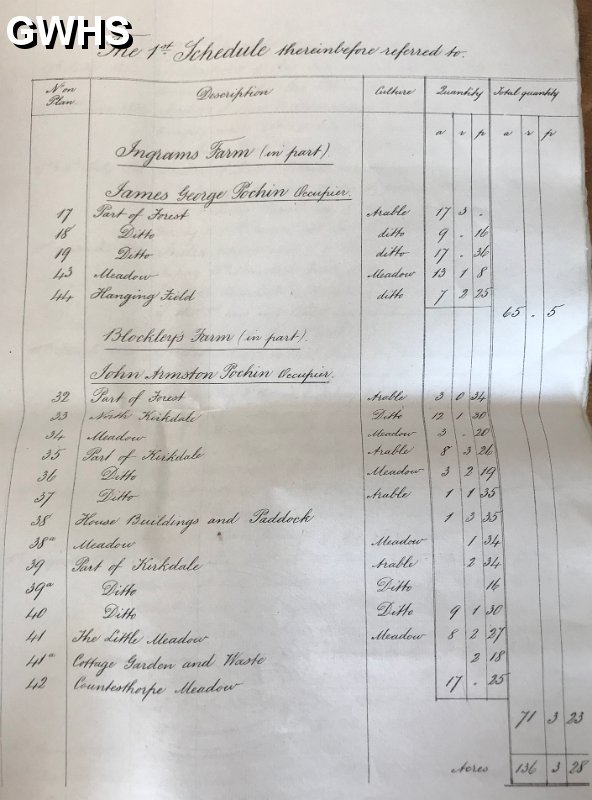 GWHS
The 1st Schedule thereinbefore referred to.
No on Plan Description Culture Quantity Total quantity
a r p a r p
Ingrams Farm (in part)
James George Pochin Occupier.
17 Part of Forest Arable 17 3 .
18 Ditto ditto 9 . 16
19 Ditto ditto 17 . 36
43 Meadow Meadow 13 1 8
44 Hanging Field ditto 7 2 25
65 . 5
Blockley's Farm (in part).
John Armston Pochin Occupier.
32 Part of Forest Arable 3 0 34
33 North Kirkdale Ditto 12 1 30
34 Meadow Meadow 3 . 20
35 Part of Kirkdale Arable 8 3 26
36 Ditto Meadow 3 2 19
37 Ditto Arable 1 1 35
38 House Buildings and Paddock 1 3 35
38a Meadow Meadow 1 34
39 Part of Kirkdale Arable 2 34
39a Ditto Ditto 16
40 Ditto Ditto 9 1 30
41 The Little Meadow Meadow 8 2 27
41a Cottage Garden and Waste 2 18
42 Countesthorpe Meadow 17 . 25
71 3 23
Acres 136 3 28